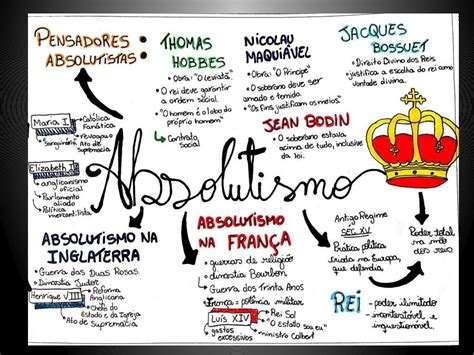 PENSADORES
ABSOLUTISTAS:
THOMAS
HOBBES
• Obra: "O Leviatã"
• O rei deve garantir
a ordem social.
• "O homem é o lobo do
próprio homem"
↳ Contrato
Social
NICOLAU
MAQUIÁVEL
• Obra: "O Príncipe"
• O soberano deve ser
amado e temido.
• "Os fins justificam os meios"
JACQUES
BOSSUET
• Direito Divino dos Reis.
• justifica a escolha do rei como
vontade divina.
JEAN BODIN
• O soberano estava
acima de tudo, inclusive
da lei.
Maria I
Católica
Fanática
Sanguinária
revogou o
Ato de
Supremacia
Elizabeth I
anglicanismo
oficial
Parlamento
aliado
Política
mercantilista
Absolutismo
ABSOLUTISMO NA
INGLATERRA
• Guerra das Duas Rosas.
• Dinastia Tudor
Henrique VIII
Reforma
Anglicana
Chefe do
Estado e da Igreja
Ato de Supremacia
ABSOLUTISMO
NA FRANÇA
• guerras de religião
• dinastia Bourbon
• Guerra dos Trinta Anos
França = potência militar
Luís XIV
Rei Sol
"O Estado sou eu"
gastos
excessivos
ministro Colbert
Antigo Regime
SÉC. XV
Prática política
criada na Europa,
que defendia
Poder total
na mão
dos reis
REI
- poder ilimitado
- incontestável e
inquestionável